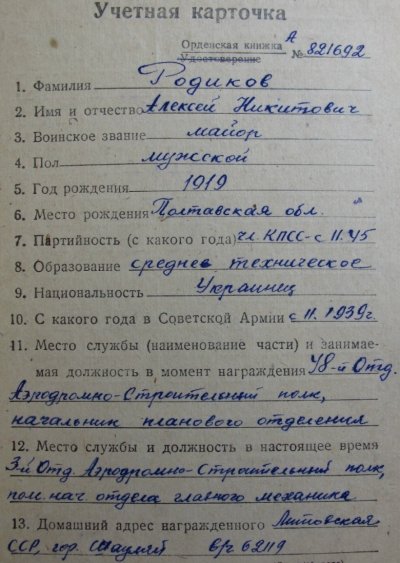 Учетная карточка
Орденская книжка А
Удостоверение № 821692
1. Фамилия Родиков
2. Имя и отчество Алексей Никитович
3. Воинское звание майор
4. Пол мужской
5. Год рождения 1919
6. Место рождения Полтавская обл.
7. Партийность (с какого года) чл. КПСС-с 11.45
8. Образование среднее техническое
9. Национальность Украинец
10. С какого года в Советской Армии с 11.1939г.
11. Место службы (наименование части) и занимае-
мая должность в момент награждения 48-й Отд.
Аэродромно-Строительный полк,
начальник планового отделения
12. Место службы и должность в настоящее время
3-й Отд. Аэродромно-Строительный полк,
пом. нач. отдела главного механика
13. Домашний адрес награжденного Литовская
ССР, гор. Шауляй в/ч 62119